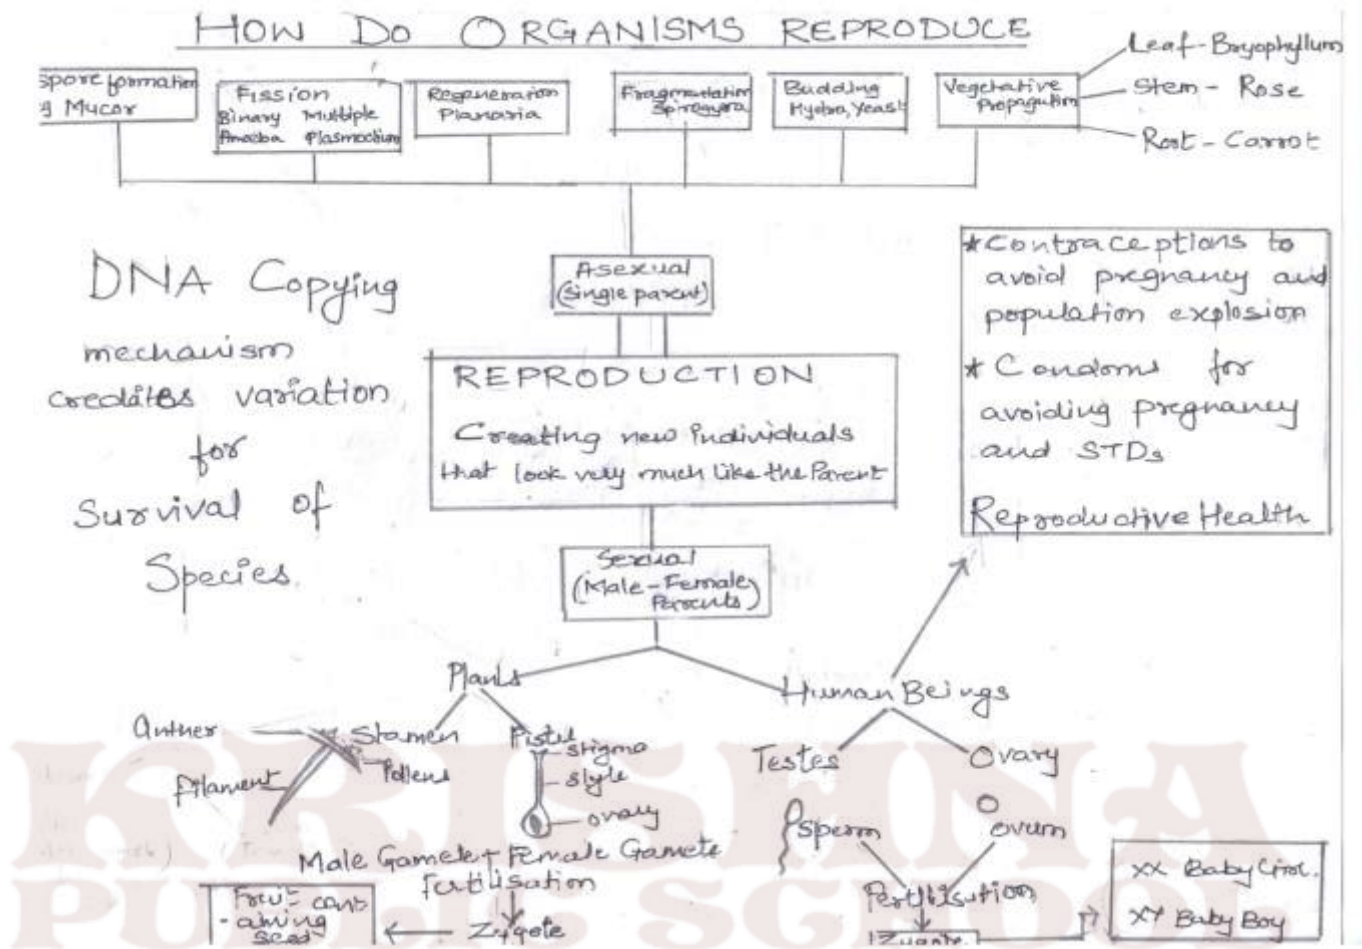 HOW DO ORGANISMS REPRODUCE
spore formation
Mucor
Fission
Binary Multiple
Amoeba Plasmodium
Regeneration
Planaria
Fragmentation
Spirogyra
Budding
Hydra, Yeast
Vegetative
Propagation
Leaf - Bryophyllum
Stem - Rose
Root - Carrot
Asexual
(single parent)
DNA Copying
mechanism
creates variation
for
Survival of
Species.
REPRODUCTION
Creating new individuals
that look very much like the Parent
* Contraceptions to
avoid pregnancy and
population explosion
* Condoms for
avoiding pregnancy
and STDs
Reproductive Health
Sexual
(Male-Female
Parents)
Plants
Human Beings
Anther
Stamen
Filament
Pollens
Pistil
Stigma
Style
Ovary
Testes
Ovary
Sperm
Ovum
Male Gamete + Female Gamete
Fertilisation
Zygote
Fruit cont
-aining
seed
Fertilisation
Zygote
XX Baby Girl.
XY Baby Boy
KRISHNA
PUBLIC SCHOOL